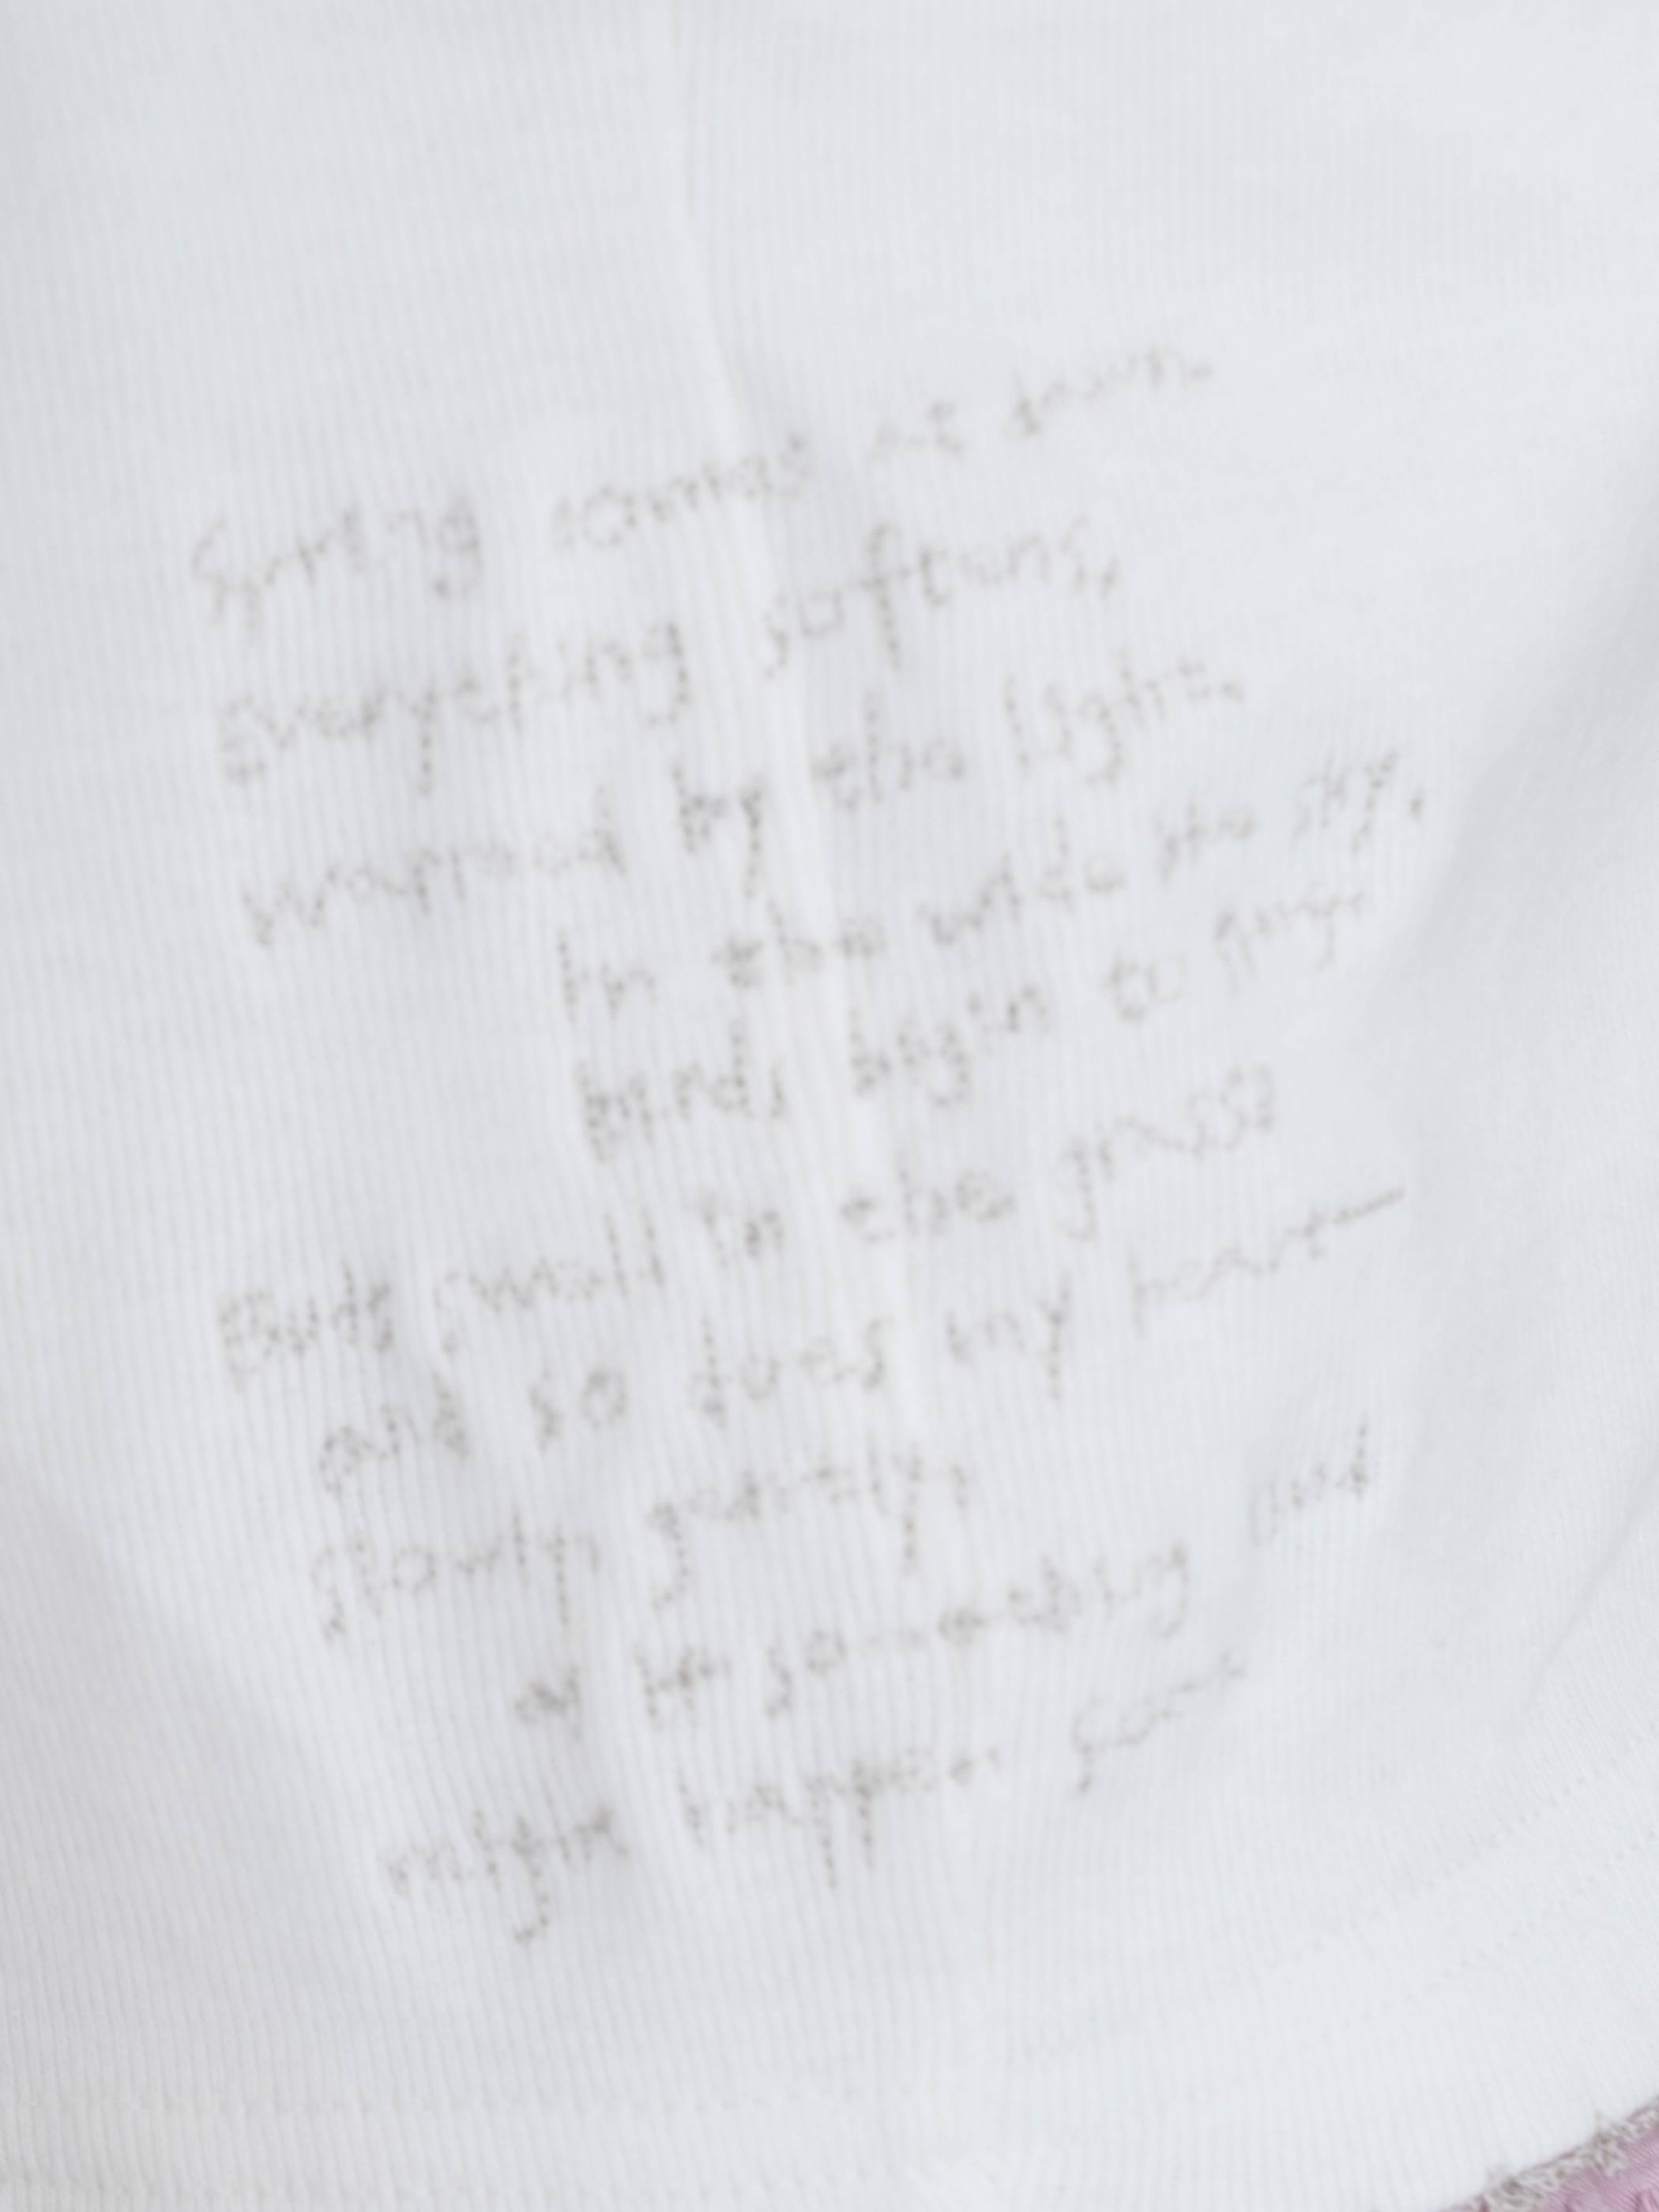 Spring comes at dawn.
everything softens,
wrapped by the light.
In the wide sky.
birds begin to
Buds swell in the grass
and so does my heart—
slowly, gently,
as if something good
might happen